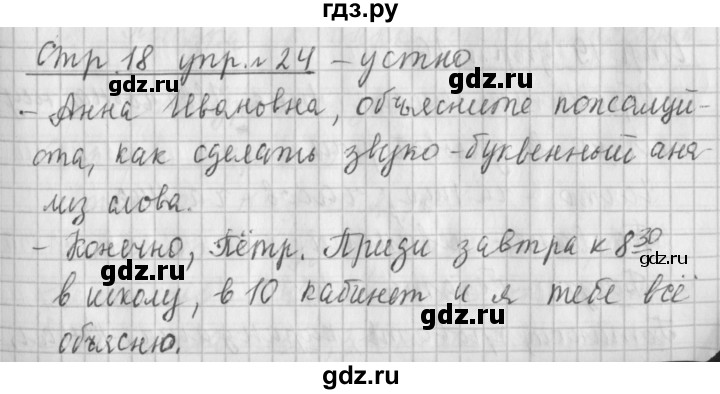 гдз.ру
Стр. 18 упр. № 24 – устно
gdz.ru gdz.ru
– Анна Ивановна, объясните пожалуй-
ста, как сделать звуко-буквенный ана-
gdz.ru gdz.ru
лиз слова.
– Конечно, Пётр. Приди завтра к 8 30
gdz.ru gdz.ru gdz.ru
в школу, в 10 кабинет и я тебе всё
gdz.ru
объясню.
gdz.ru
gdz.ru